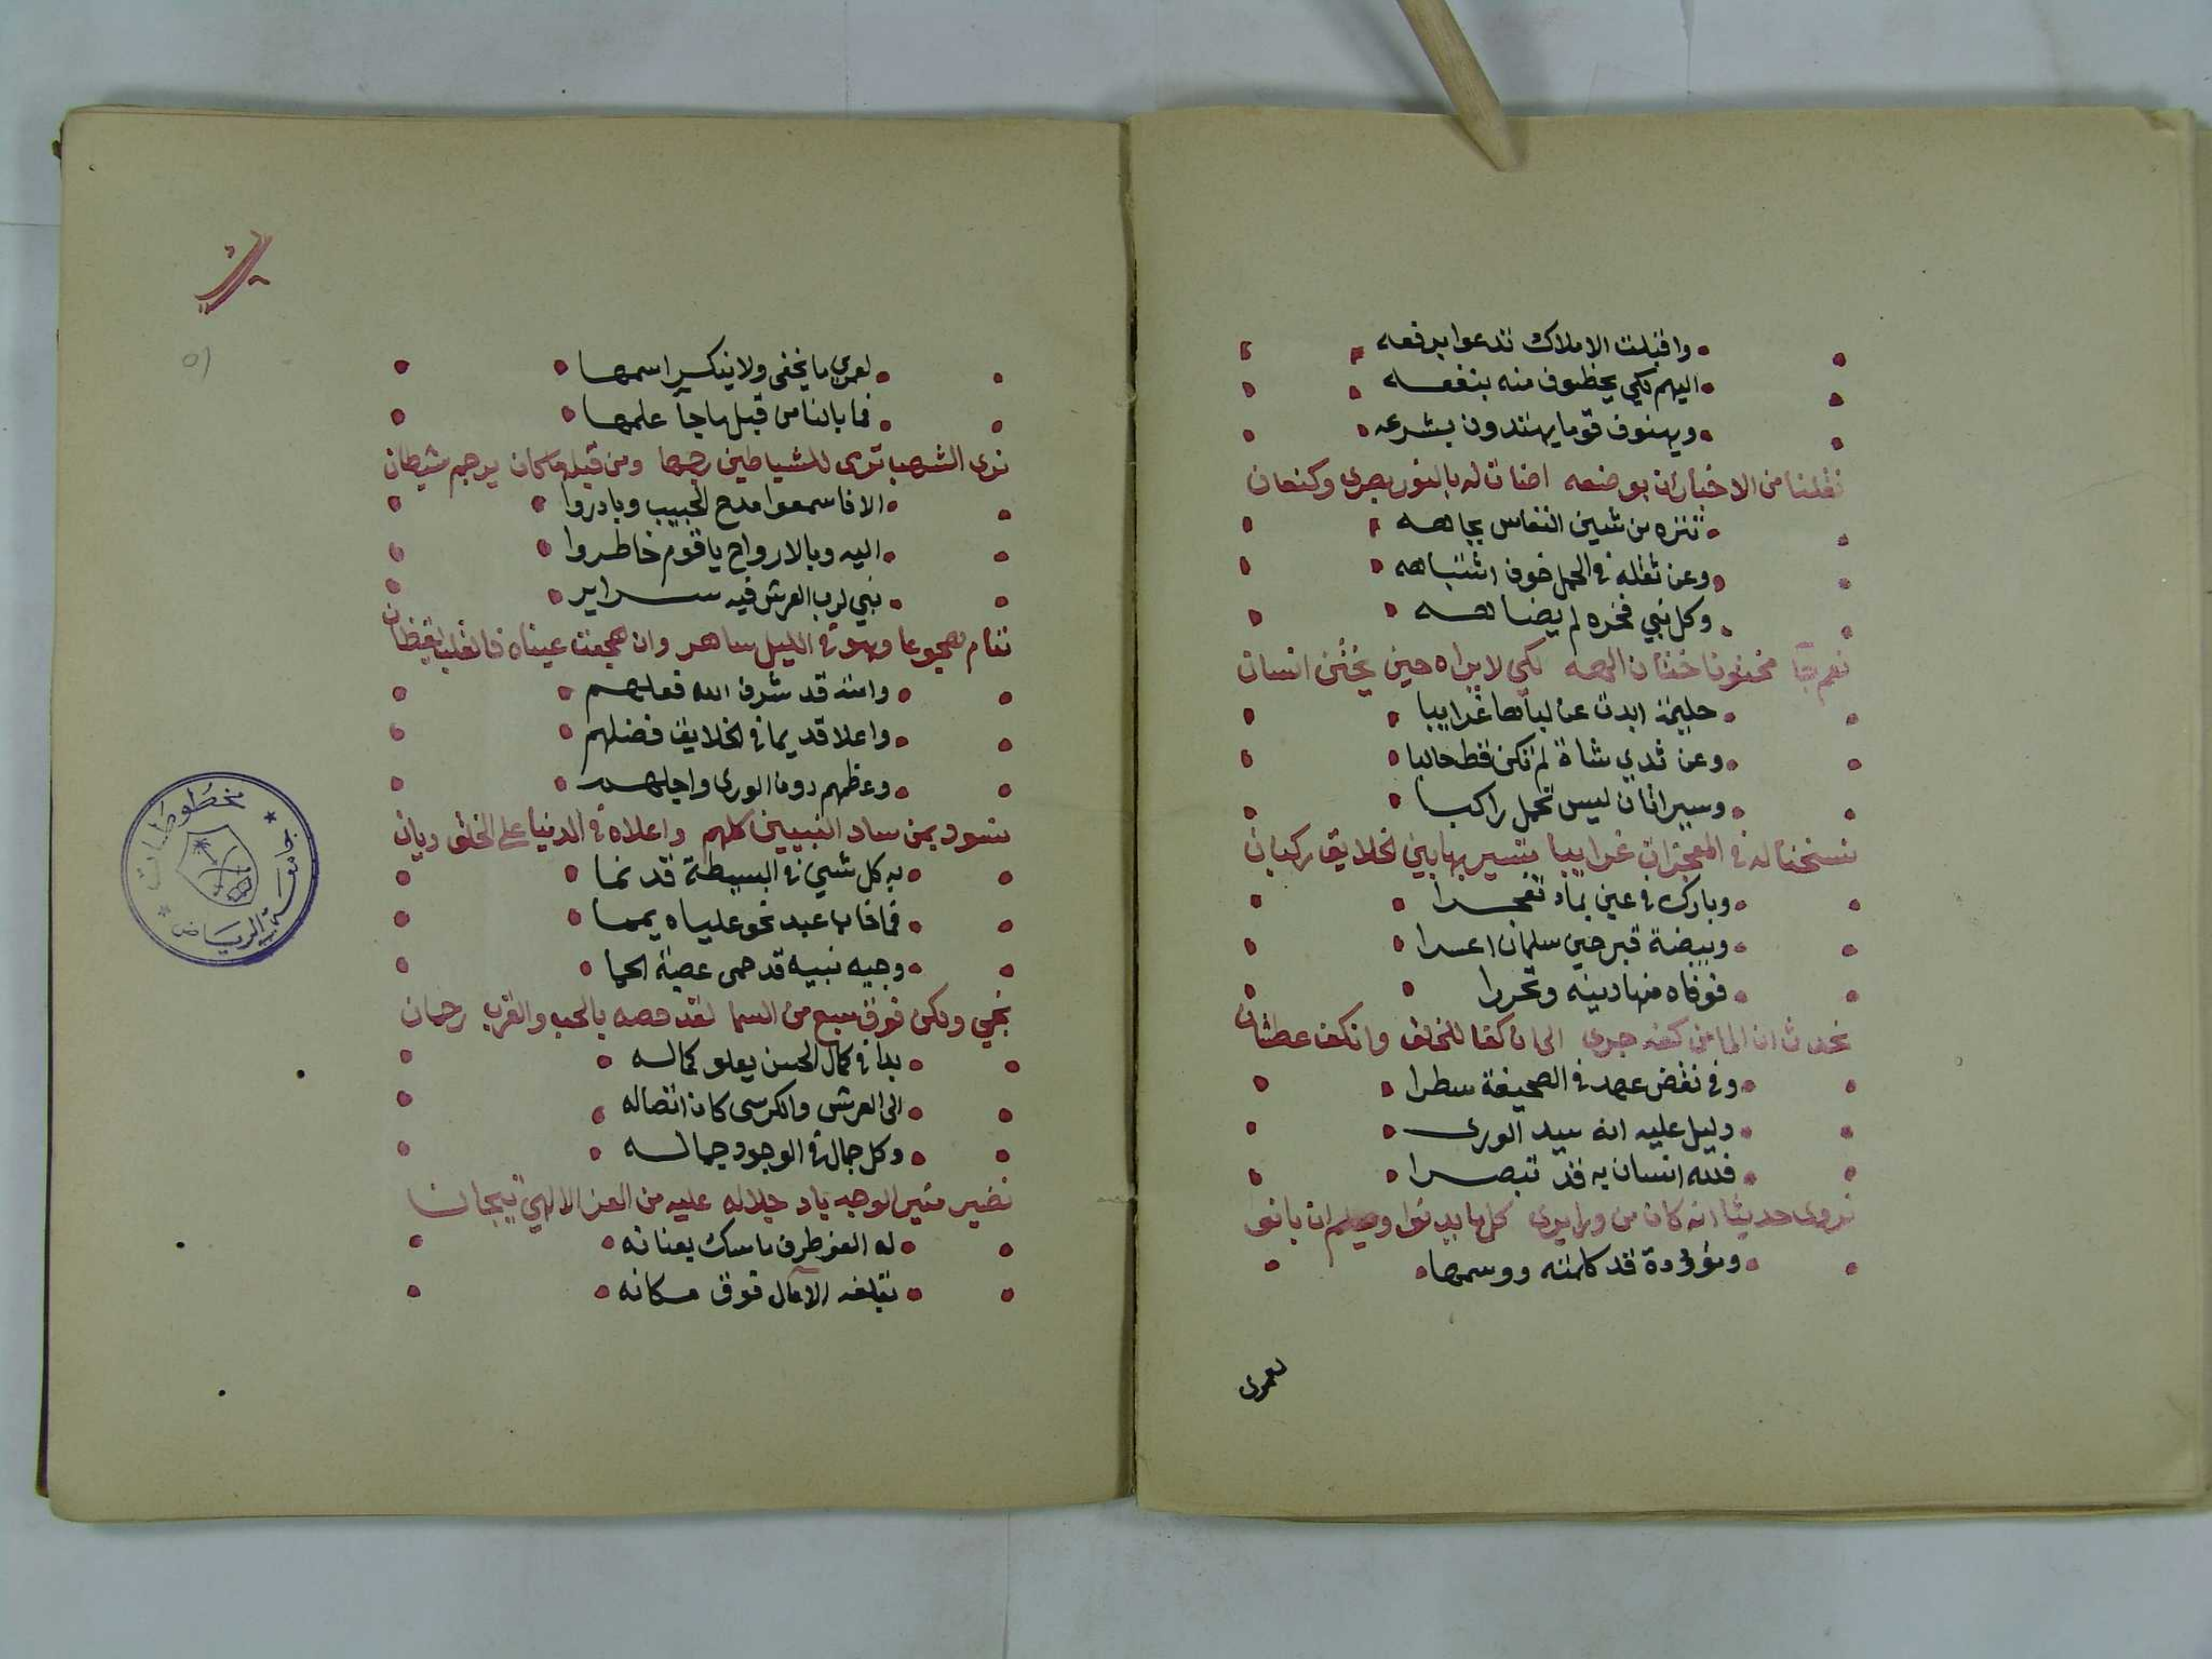 واقبلت الاملاك تدعوا برفعه
اليهم لكي يحظوف منه بنفعه
ويهنوف قوما يهتدون بشرعه
نقلنا من الاخبار ان بوضعه اضات له بالنور بصرى وكنعان
تنزه من شين النفاس بجاهه
وعن ثقله في الحمل خوف اشتباهه
وكل نبي فخره لم يضاهه
نعم جا مختونا ختان الهه لكي لا يراه حين يختن انسان
حليمة ابدت عن لباها غرايبا
وعن ثدي شاة لم تكن قط حالبا
وسير اتان ليس تحمل راكبا
نسخنا له في المعجزات غرايبا تسير بها بين الخلايق ركبان
وبارك في عين بماء تفجرا
وبيضة تبر حين سلمان اعسرا
فوفاه منها دينه وتحررا
تحدث ان الما من كفه جرى الى ان كفا للخلق وانكف عطشان
وفي نقض عهد في الصحيفة سطرا
دليل عليه انه سيد الورى
فلله انسان به قد تبصرا
نروى حديثا انه كان من ورا يرى كل ما يدنوا وان بانوا
وموؤدة قد كلمته ووسمها
لعمرى
لعمري ما يخفى ولا ينكر اسمها
فما بالنا من قبل ما جآ علمها
نرى الشهب ترى للشياطين رجمها ومن قبله ما كان يرجم شيطان
الا فاسمعوا مدح الحبيب وبادروا
اليه وبالارواح يا قوم خاطروا
نبي لرب العرش فيه سراير
تنام هجوعا وهو في الليل ساهر وان هجعت عيناه فالقلب يقظان
وامته قد شرف الله فعلهم
واعلا قديما في الخلايق فضلهم
وعظمهم دون الورى واجلهم
نسود بمن ساد النبيين كلهم واعلاه في الدنيا على الخلق ديان
به كل شيء في البسيطة قد نما
فما خاب عبد نحو علياه يمما
وجيه نبيه قد حمى عصبة الحما
نجي ولكن فوق سبع من السما لقد خصه بالحب والقرب رحمان
بدا في كمال الحسن يعلو كماله
الى العرش والكرسى كان اتصاله
وكل جمال في الوجود جماله
نضير منير الوجه باد جلاله عليه من العز الالهي تيجان
له العز طرف ماسك بعنانه
تبلغه الآمال فوق مكانه
مخطوطات
جامعة الرياض